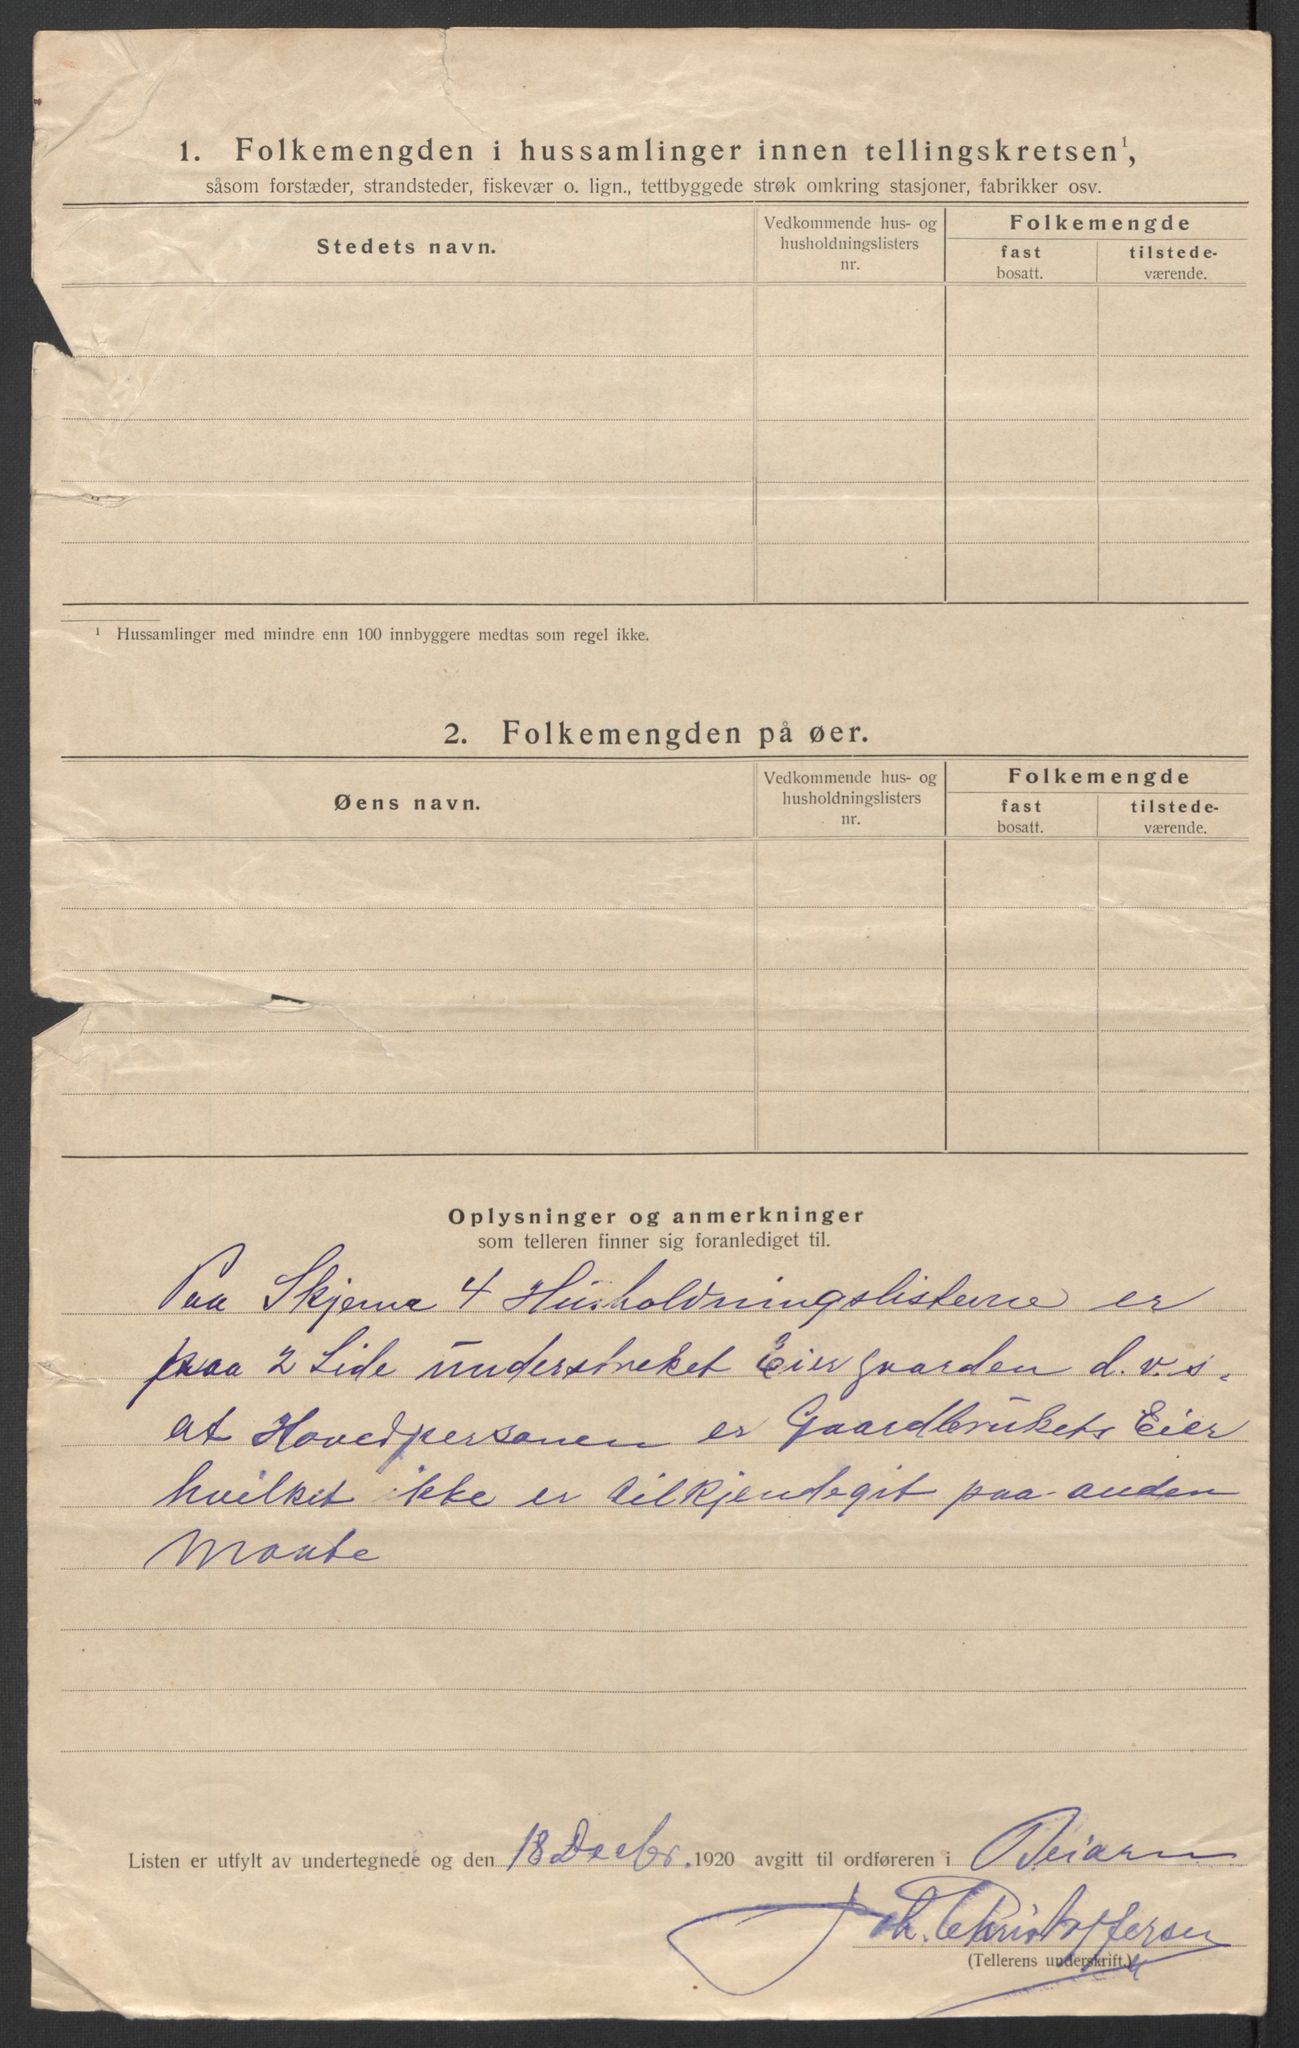 1. Folkemengden i hussamlinger innen tellingskretsen¹,
såsom forstæder, strandsteder, fiskevær o. lign., tettbyggede strøk omkring stasjoner, fabrikker osv.
Stedets navn.
Vedkommende hus- og
husholdningslisters
nr.
Folkemengde
fast
bosatt.
tilstede-
værende.
¹ Hussamlinger med mindre enn 100 innbyggere medtas som regel ikke.
2. Folkemengden på øer.
Øens navn.
Vedkommende hus- og
husholdningslisters
nr.
Folkemengde
fast
bosatt.
tilstede-
værende.
Oplysninger og anmerkninger
som telleren finner sig foranlediget til.
Paa Skjema 4 Husholdningslisterne er
paa 2 Side understreket Eier gaarden d.v.s.
at Hovedpersonen er Gaardbrukets Eier
hvilket ikke er tilkjendegit paa anden
Maate
Listen er utfylt av undertegnede og den 18 Decbr. 1920 avgitt til ordføreren i Beiarn
Christoffersen
(Tellerens underskrift.)